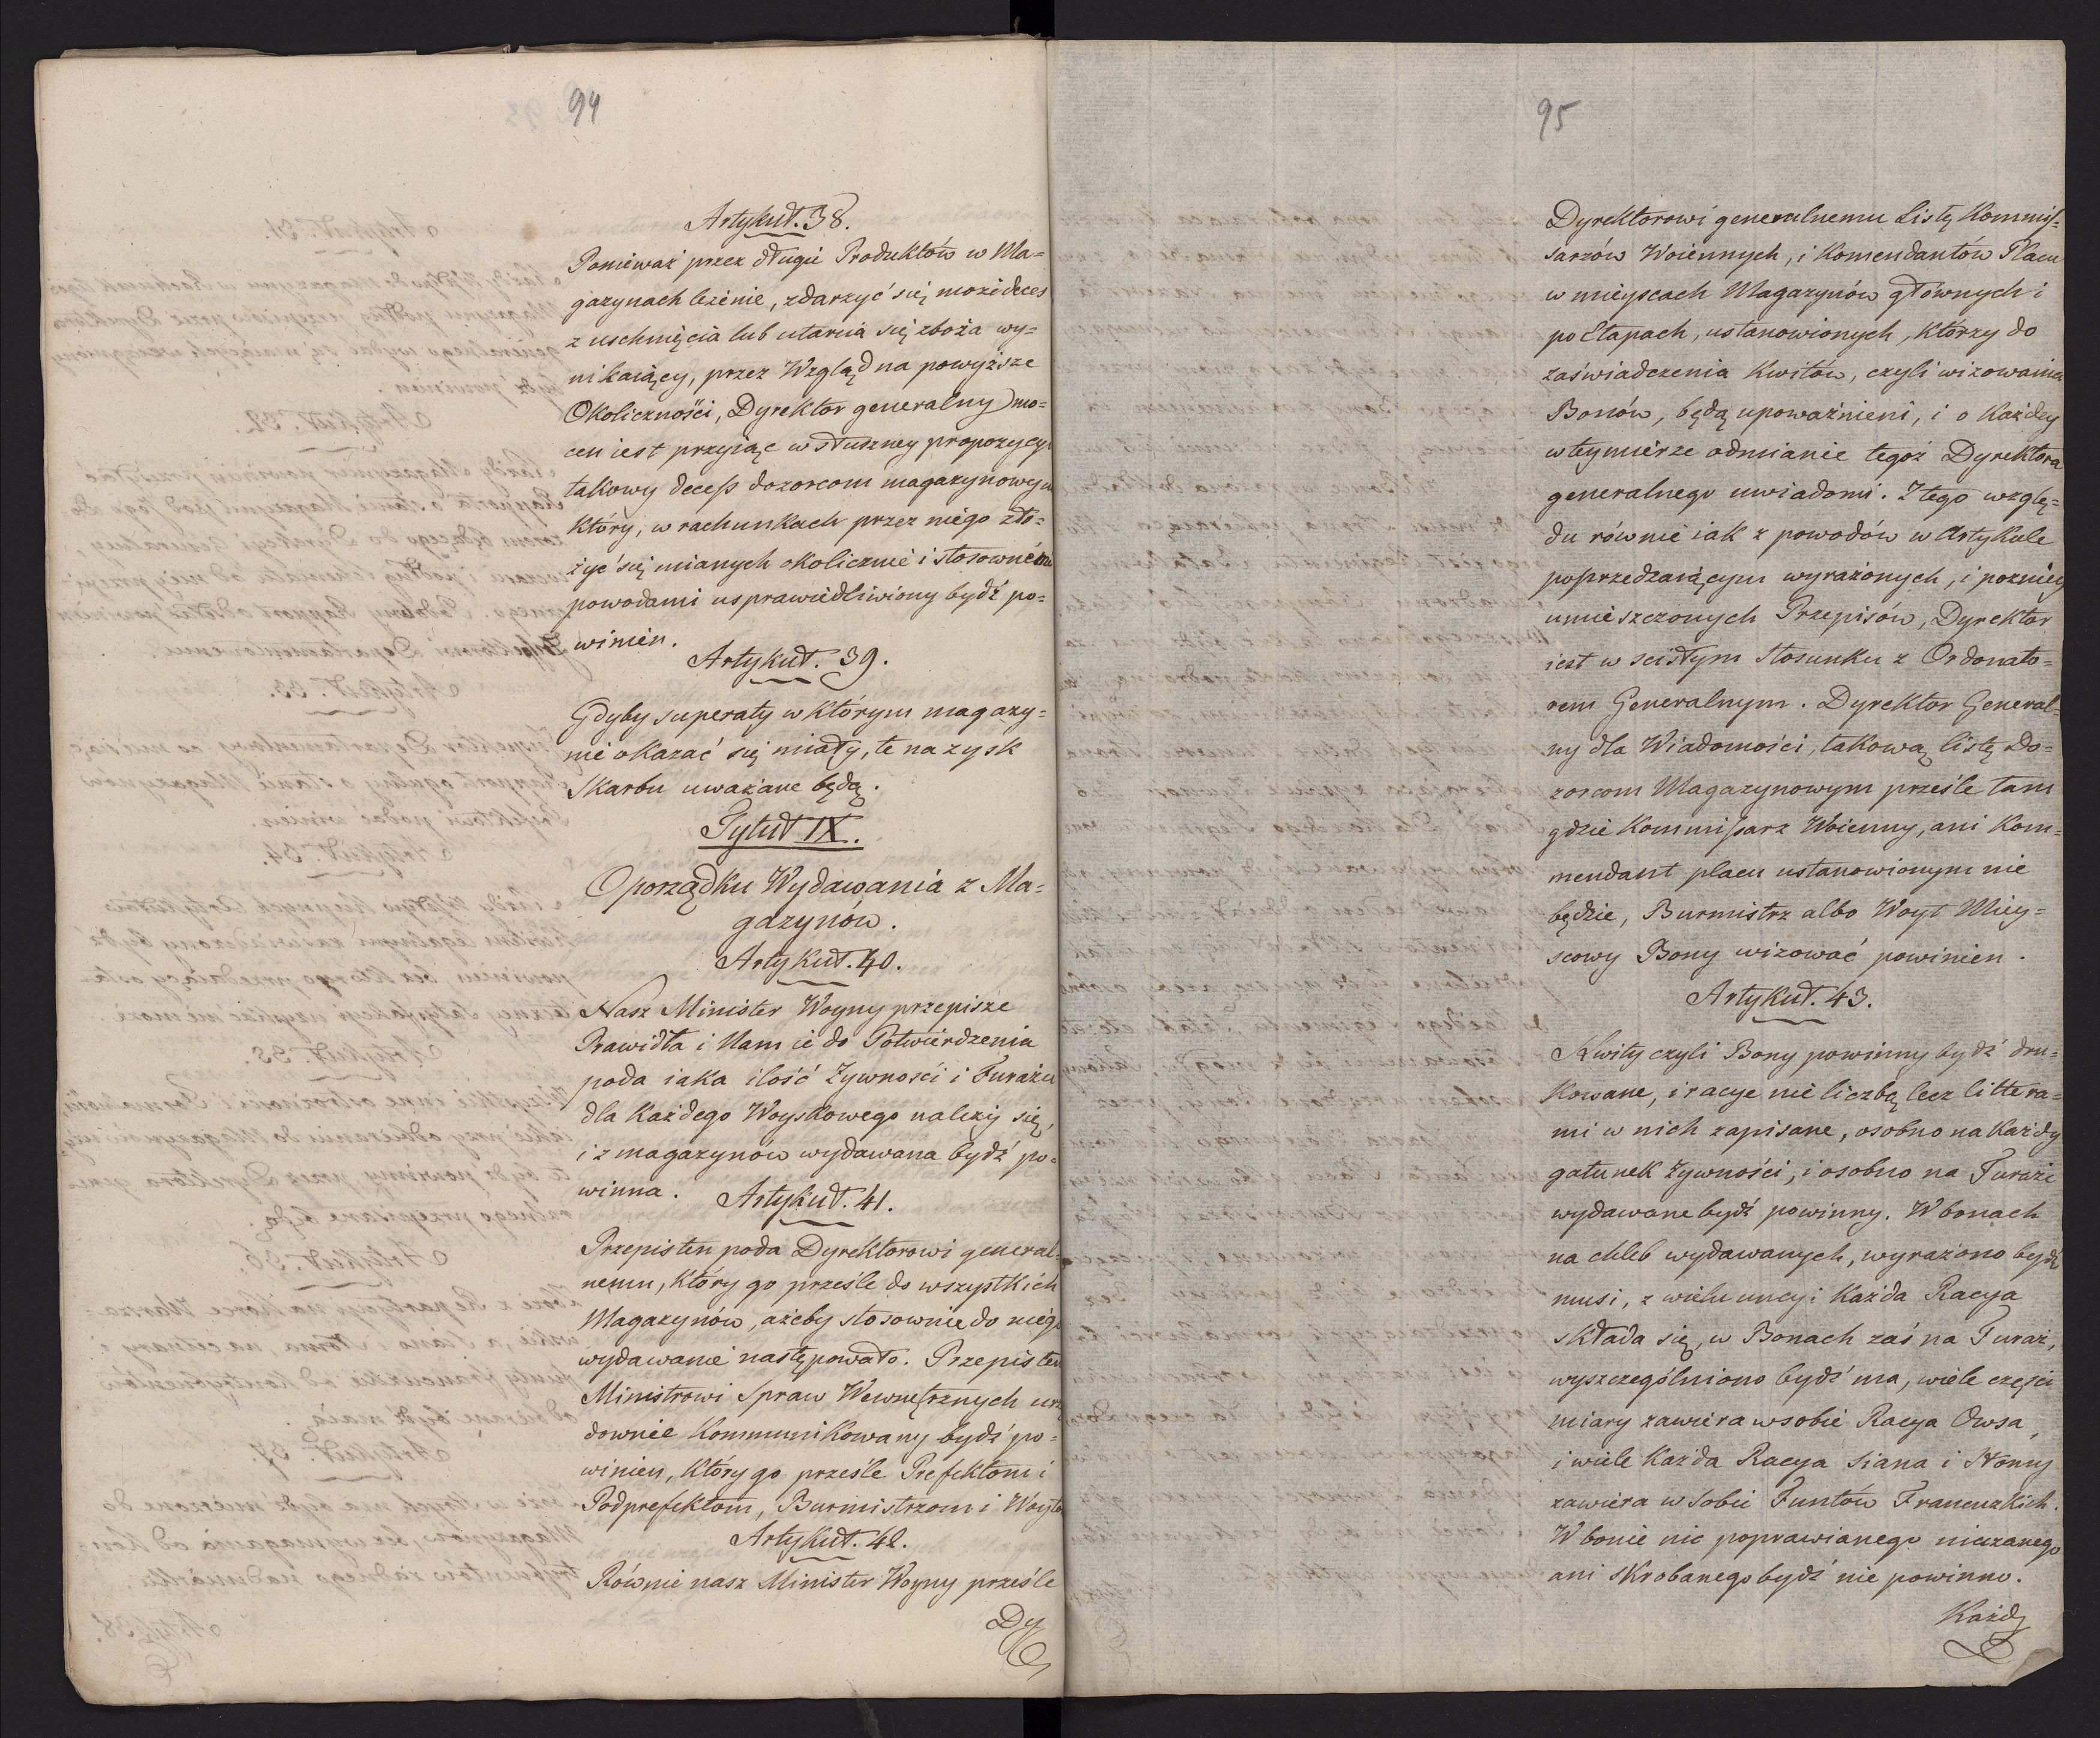 94
Artykuł. 38.
Ponieważ przez długie Produktów w Ma=
gazynach leżenie, zdarzyć się może deces
z uschnięcia lub utarcia się zboża wy=
nikaiący, przez Wzgląd na powyższe
Okoliczności, Dyrektor generalny mo=
cen iest przyiąć w słuszney propozycyi
takowy decess dozorcom magazynowym
który, w rachunkach przez niego zło=
żyć się mianych okolicznie i stosownémi
powodami usprawiedliwiony bydź po=
winien.
Artykuł. 39.
Gdyby superaty w którym magazy=
nie okazać się miały, te na zysk
Skarbu uważane będą.
Tytuł IX.
O porządku Wydawania z Ma=
gazynów.
Artykuł. 40.
Nasz Minister Woyny przepisze
Prawidła i Nam ie do Potwierdzenia
poda iaka ilość Żywności i Furażu
dla Każdego Woyskowego należy się,
i z magazynów wydawana bydź po=
winna.
Artykuł. 41.
Przepis ten poda Dyrektorowi general=
nemu, Który go prześle do wszystkich
Magazynów, ażeby stosownie do niego
wydawanie następowało. Przepis ten
Ministrowi Spraw Wewnętrznych urzę
downie Kommunikowany bydź po=
winien, Który go prześle Prefektom i
Podprefektom, Burmistrzom i Woyto
Artykuł. 42.
Równie nasz Minister Woyny prześle
Dy
95
Dyrektorowi generalnemu Listę Kommis=
sarzów Woiennych, i Komendantów Placu
w mieyscach Magazynów głównych i
po Etapach, ustanowionych, Którzy do
zaświadczenia Kwitów, czyli wizowania
Bonów, będą upoważnieni, i o Każdey
w tey mierze odmianie tegoż Dyrektora
generalnego uwiadomi. Z tego wzglę=
du równie iak z powodów w Artykule
poprzedzaiącym wyrażonych, i pozniey
umieszczonych Przepisów, Dyrektor
iest w scisłym Stosunku z Ordonato=
rem Generalnym. Dyrektor General=
ny dla Wiadomości, takową listę Do=
zorcom Magazynowym prześle tam
gdzie Kommissarz Woienny, ani Kom=
mendant placu ustanowionym nie
będzie, Burmistrz albo Woyt Miey=
scowy Bony wizować powinien.
Artykuł. 43.
Kwity czyli Bony powinny bydź dru=
Kowane, i racye nie liczbą lecz littera=
mi w nich zapisane, osobno na Każdy
gatunek Żywności, i osobno na Furaże
wydawane bydź powinny. W bonach
na chleb wydawanych, wyrażono bydź
musi, z wielu uncyi Każda Racya
składa się, w Bonach zaś na Furaż,
wyszczególniono bydź ma, wiele części
miary zawiera w sobie Racya Owsa,
i wiele Każda Racya Siana i Słomy
zawiera w Sobie Funtów Francuzkich.
W bonie nic poprawianego mazanego
ani skrobanego bydź nie powinno.
Każdy